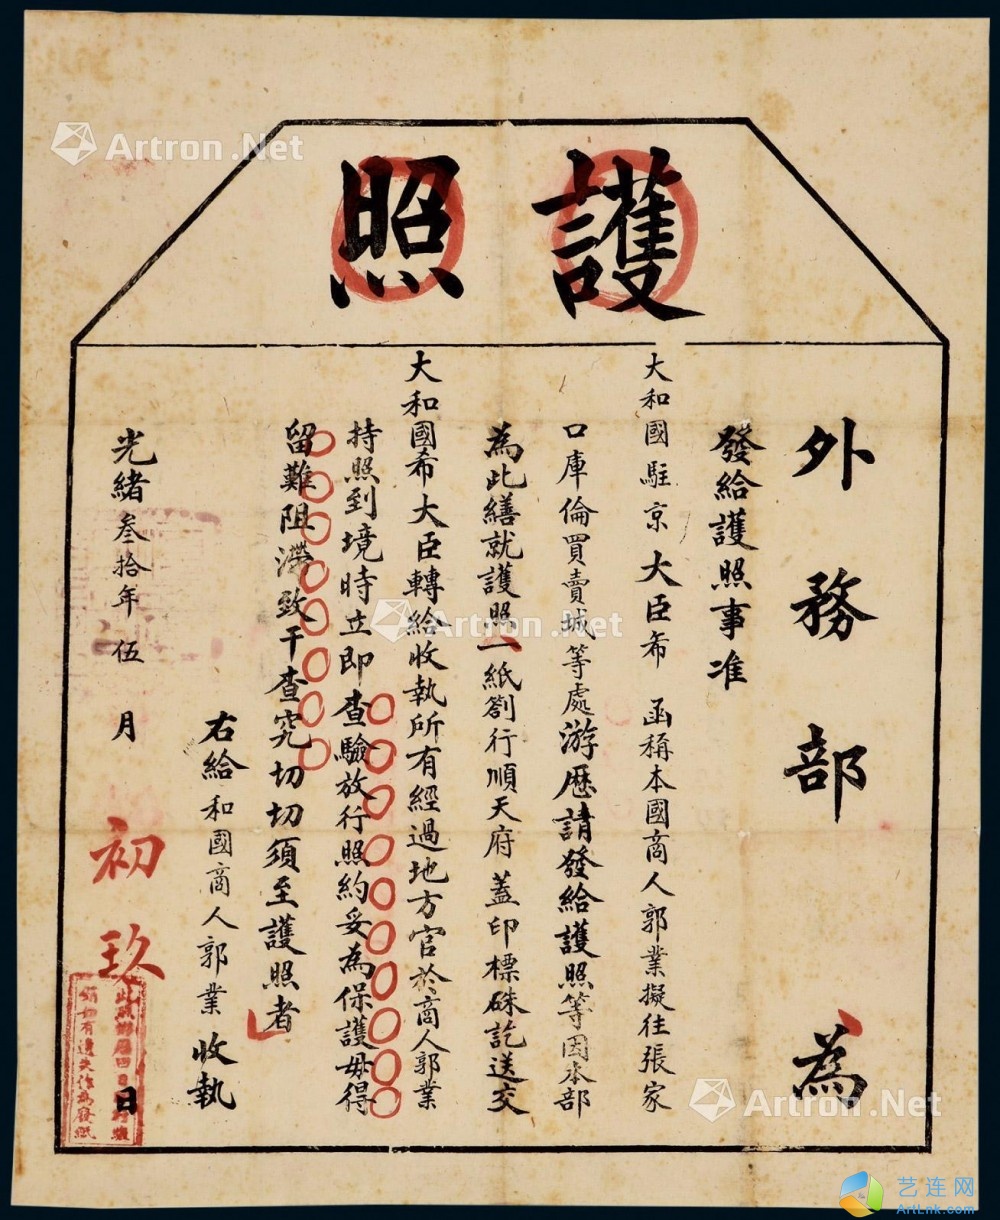 護照
外務部為
發給護照事准
大和國駐京大臣希　函稱本國商人郭業擬往張家
口庫倫買賣城等處游歷請發給護照等因本部
為此繕就護照一紙劄行順天府蓋印標硃訖送交
大和國希大臣轉給收執所有經過地方官於商人郭業
持照到境時立即查驗放行照約妥為保護毋得
留難阻滯致干查究切切須至護照者
右給和國商人郭業收執
光緒叁拾年伍月初玖日
Artron.Net
Artron.Net
Artron.Net
艺连网
ArtLnk.com